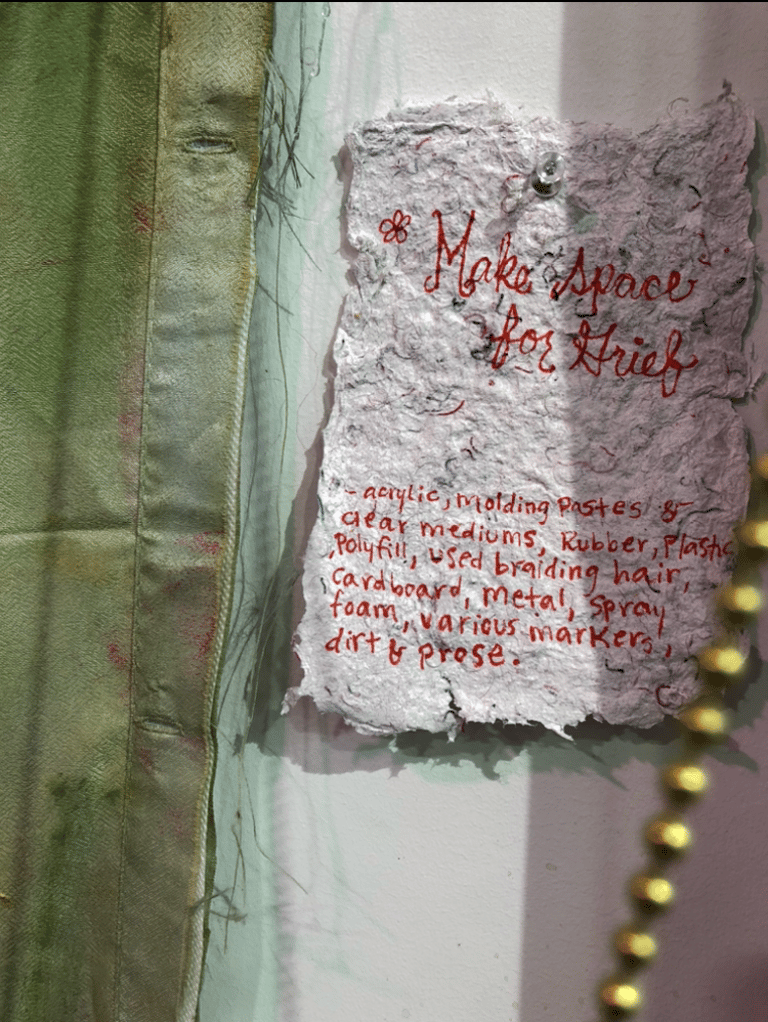 Make space
for Grief
- acrylic, molding Pastes &
clear mediums, Rubber, Plastic
, Polyfill, used braiding hair,
cardboard, metal, spray
foam, various markers,
dirt & prose.